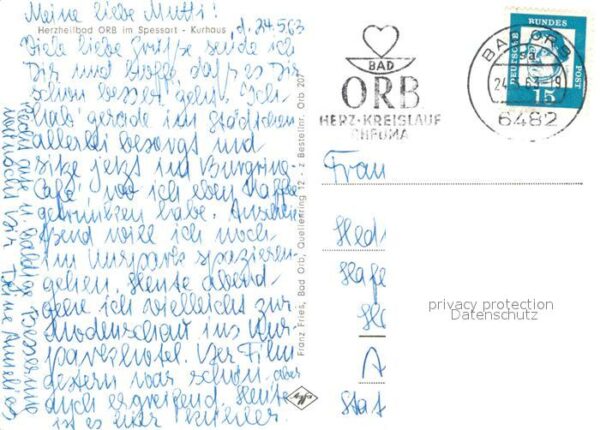 Meine liebe Mutti!
Herzheilbad ORB im Spessart - Kurhaus
d. 24.5.63
Viele liebe Grüße sende ich
Dir und hoffe, daß es Dir
schon besser geht. Ich
hab' gerade im Städtchen
allerlei besorgt und
sitze jetzt im Burgring-
Café wo ich eben Kaffee
getrunken habe. Anschlie-
ßend will ich noch
im Kurpark spazieren-
gehen. Heute abend
gehe ich vielleicht zur
Modenschau ins Kur-
parkhotel. Der Film
gestern war schön aber
auch ergreifend. Heute
ist es hier
Recht gute u. baldige Besserung
wünscht Dir Deine Annelies
Franz Fries, Bad Orb, Quellenring 12 - z Bestellnr. Orb 207
BAD
ORB
HERZ·KREISLAUF
RHEUMA
BAD ORB
24
6482
DEUTSCHE
BUNDES
POST
15
Frau
Hed
Hafe
A
Stat
privacy protection
Datenschutz